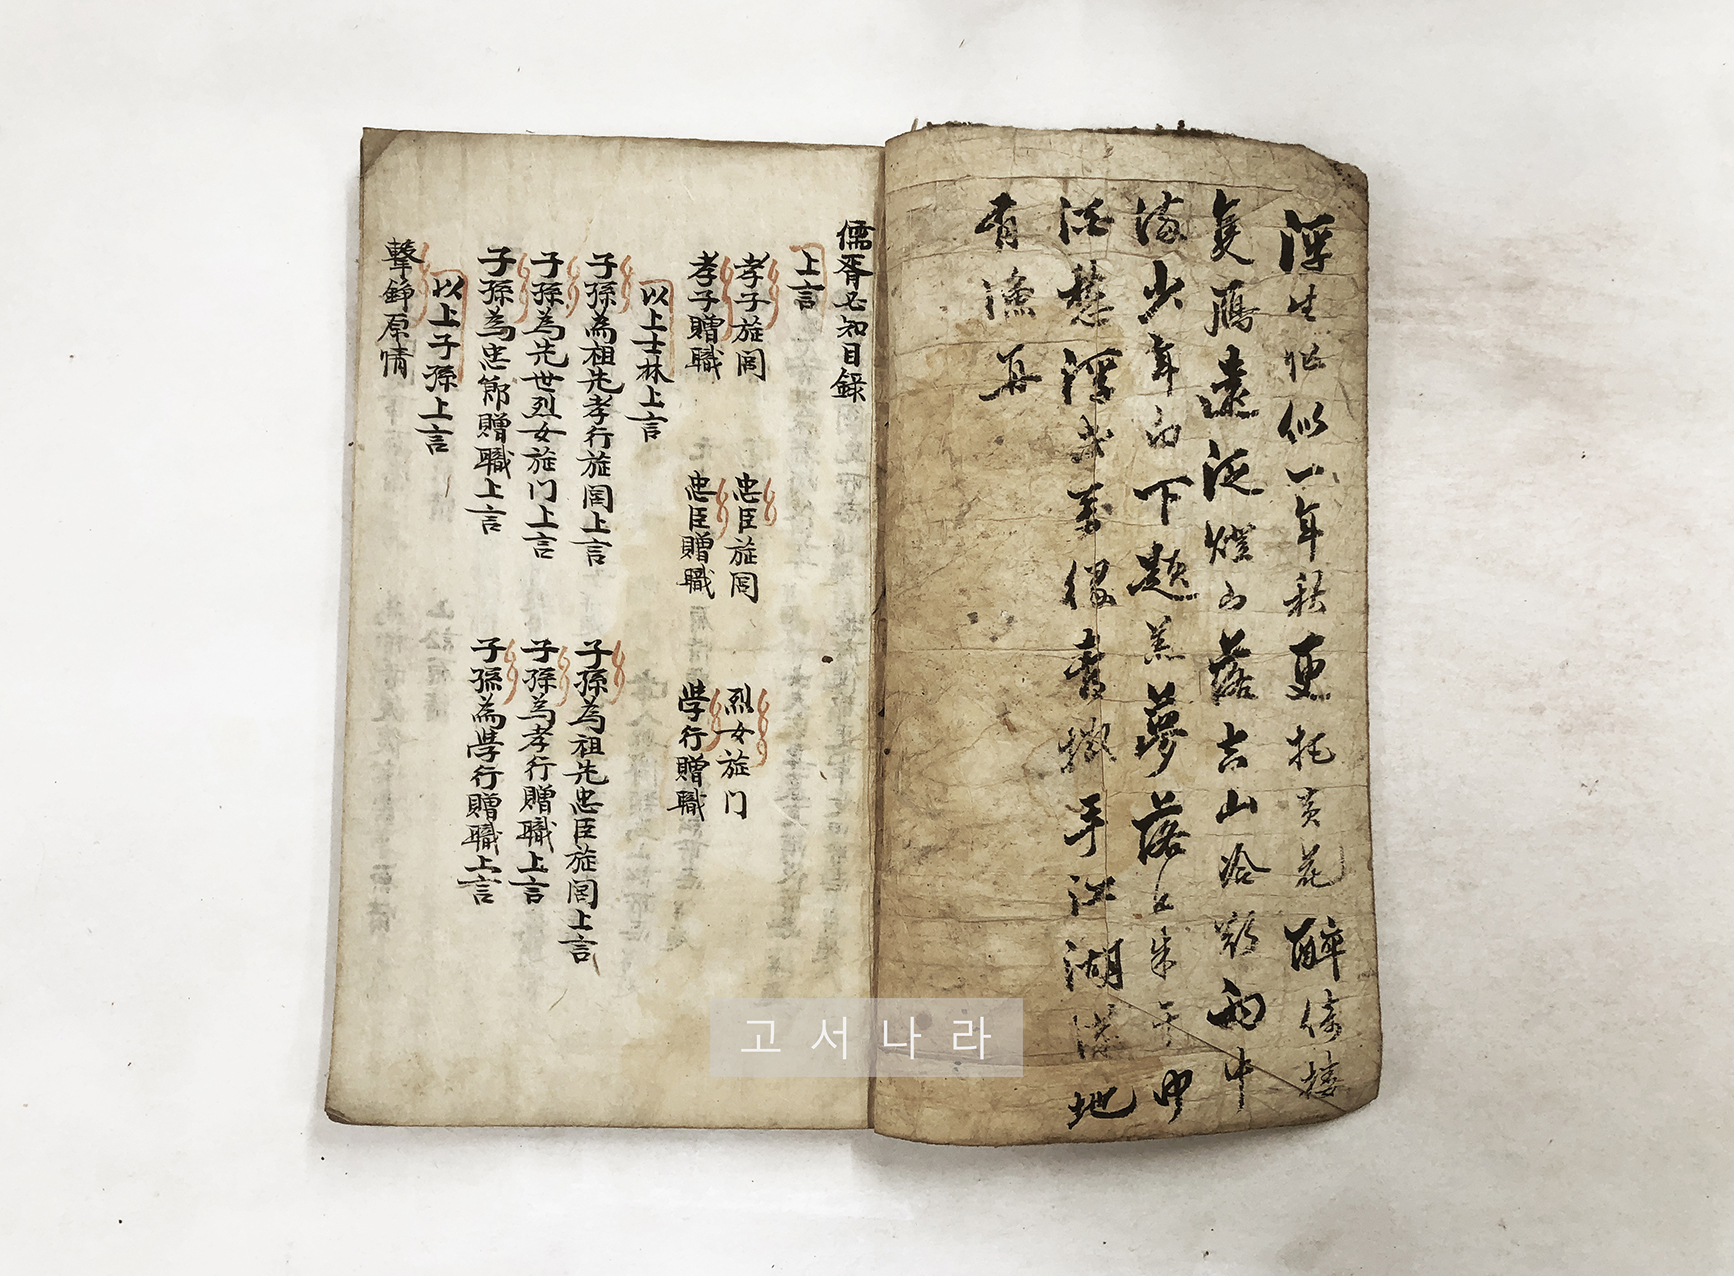 浮生恰似一年秋更托黃花醉倚樓
隻鴈遠煙落古山冷雨中
少年白下題夢落
浮萬手江湖滿地
有漁舟
儒胥必知目錄
上言
孝子旌閭 忠臣旌閭 烈女旌门
孝子贈職 忠臣贈職 學行贈職
以上士林上言
子孫為祖先孝行旌閭上言 子孫為祖先忠臣旌閭上言
子孫為先世烈女旌门上言 子孫為孝行贈職上言
子孫為忠節贈職上言 子孫為學行贈職上言
以上子孫上言
擊錚原情
고서나라